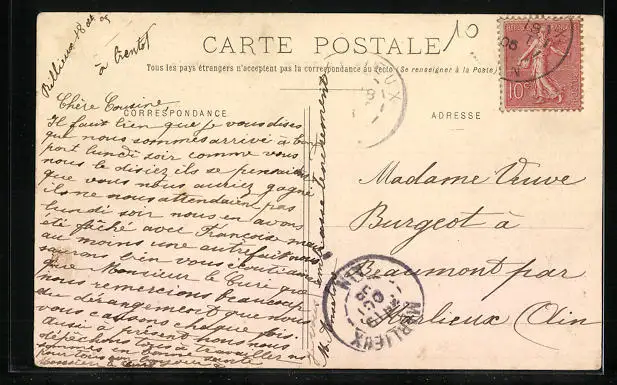 Rillieux 18 oct 05
à bientôt
10
CARTE POSTALE
Tous les pays étrangers n'acceptent pas la correspondance au recto (Se renseigner à la Poste)
CORRESPONDANCE
ADRESSE
10c
Chère Cousine
Il faut bien que je vous dises
que nous sommes arrivé à bon
port lundi soir comme vous
nous le disiez ils se pensaient
que vous nous auriez gagné
ils ne nous attendaient pas
lundi soir nous en avons
été fâché avec Françoise mais
au moins une autre fois nous
saurons bien vous écouter ainsi
que Monsieur le Curé que
nous remercions beaucoup
du dérangement que nous
vous causons chaque fois.
Aussi à présent nous nous
dépêchons tous à travailler
sommes en bonne santé
pour tous
Madame Veuve
Burgeot à
Beaumont par
Marlieux (Ain
MARLIEUX
AIN